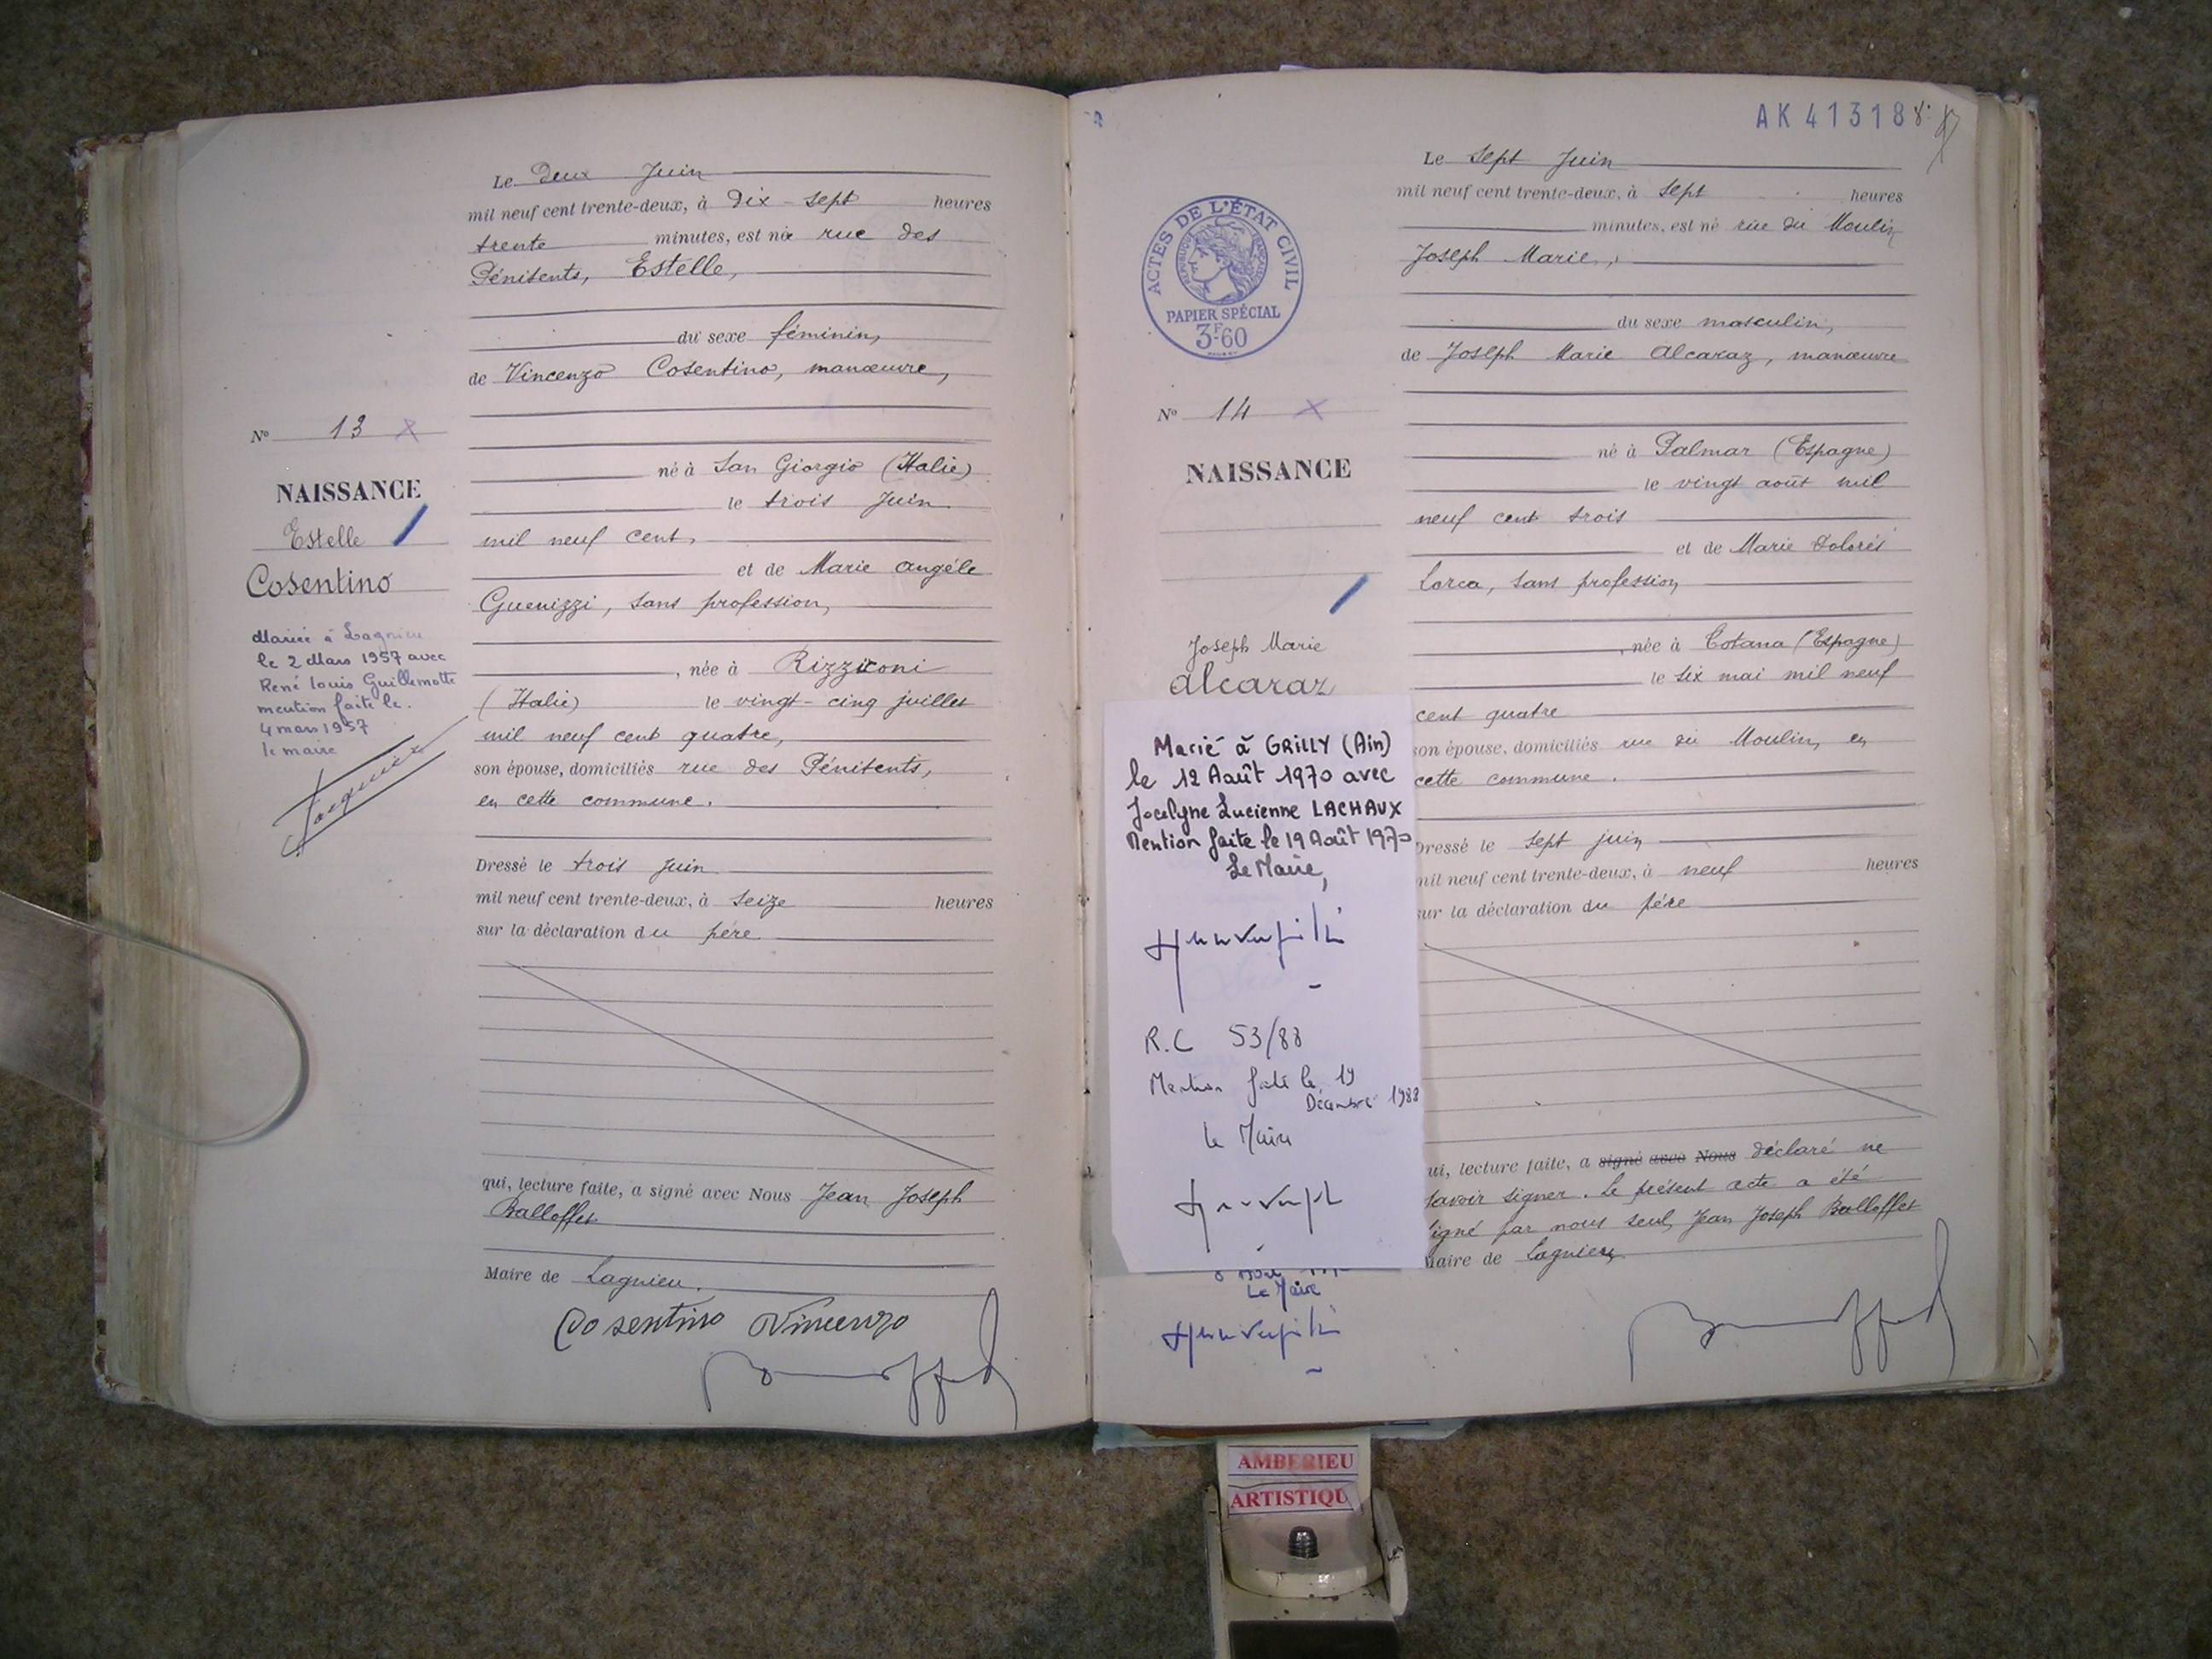 Le Deux Juin
mil neuf cent trente-deux, à Dix-sept heures
trente minutes, est née rue des
Pénitents, Estelle,
du sexe féminin,
de Vincenzo Cosentino, manœuvre,
né à San Giorgio (Italie)
le trois Juin
mil neuf cent,
et de Marie Angèle
Guenizzi, sans profession,
, née à Rizziconi
(Italie) le vingt-cinq juillet
mil neuf cent quatre,
son épouse, domiciliés rue des Pénitents,
en cette commune.
Dressé le trois juin
mil neuf cent trente-deux, à seize heures
sur la déclaration du père
qui, lecture faite, a signé avec Nous Jean Joseph
Balloffet
Maire de Lagnieu.
Cosentino Vincenzo
Nº 13
NAISSANCE
Estelle
Cosentino
Mariée à Lagnieu
le 2 Mars 1957 avec
René Louis Guillemotte
mention faite le
4 mars 1957
le maire
AK 41318
ACTES DE L'ÉTAT CIVIL
RÉPUBLIQUE FRANÇAISE
PAPIER SPÉCIAL
3F60
Nº 14
NAISSANCE
Joseph Marie
Alcaraz
Marié à GRILLY (Ain)
le 12 Août 1970 avec
Jocelyne Lucienne LACHAUX
Mention faite le 19 Août 1970
Le Maire,
R.C 53/88
Mention faite le 19
Décembre 1988
le Maire
Le Maire
Le sept Juin
mil neuf cent trente-deux, à sept heures
minutes, est né rue du Moulin
Joseph Marie,
du sexe masculin,
de Joseph Marie Alcaraz, manœuvre
né à Palmar (Espagne)
le vingt août mil
neuf cent trois
et de Marie Dolorès
Lorca, sans profession,
, née à Totana (Espagne)
le six mai mil neuf
cent quatre
son épouse, domiciliés rue du Moulin, en
cette commune.
Dressé le sept juin
mil neuf cent trente-deux, à neuf heures
sur la déclaration du père
ui, lecture faite, a signé avec Nous déclaré ne
savoir signer. Le présent acte a été
signé par nous seul, Jean Joseph Balloffet
Maire de Lagnieu
AMBERIEU
ARTISTIQU